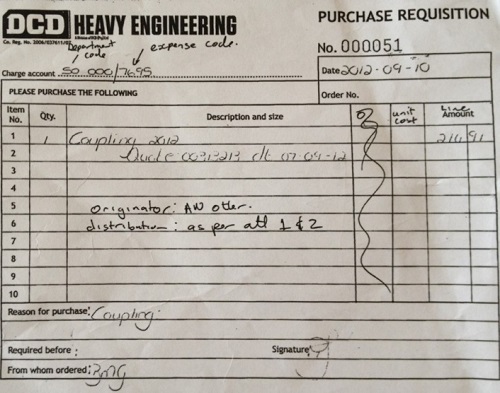 DCD HEAVY ENGINEERING
PURCHASE REQUISITION
Department code
expense code.
No. 000051
Charge account 50 000/7695
Date 2012-09-10
PLEASE PURCHASE THE FOLLOWING
Order No.
Item No.
Qty.
Description and size
unit cost
Line Amount
1 1 Coupling 2012
2 Quote 00313213 dt 07-09-12
3
4
5 originator: AN other.
6 distribution: as per att 1 & 2
7
8
9
10
Reason for purchase: Coupling.
Required before :
Signature
From whom ordered: